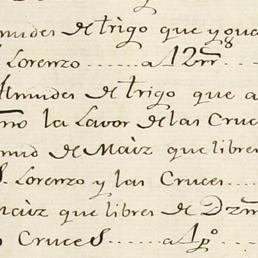 lmudes de trigo que y gua
S. Lorenzo ...... a 12 rrs
Almudes de trigo que a
mo la Lavor de las Cruc
mud de Maiz que libres
S. Lorenzo y las Cruces
Maiz que libres de Dzm
s Cruces ...... a 1 po